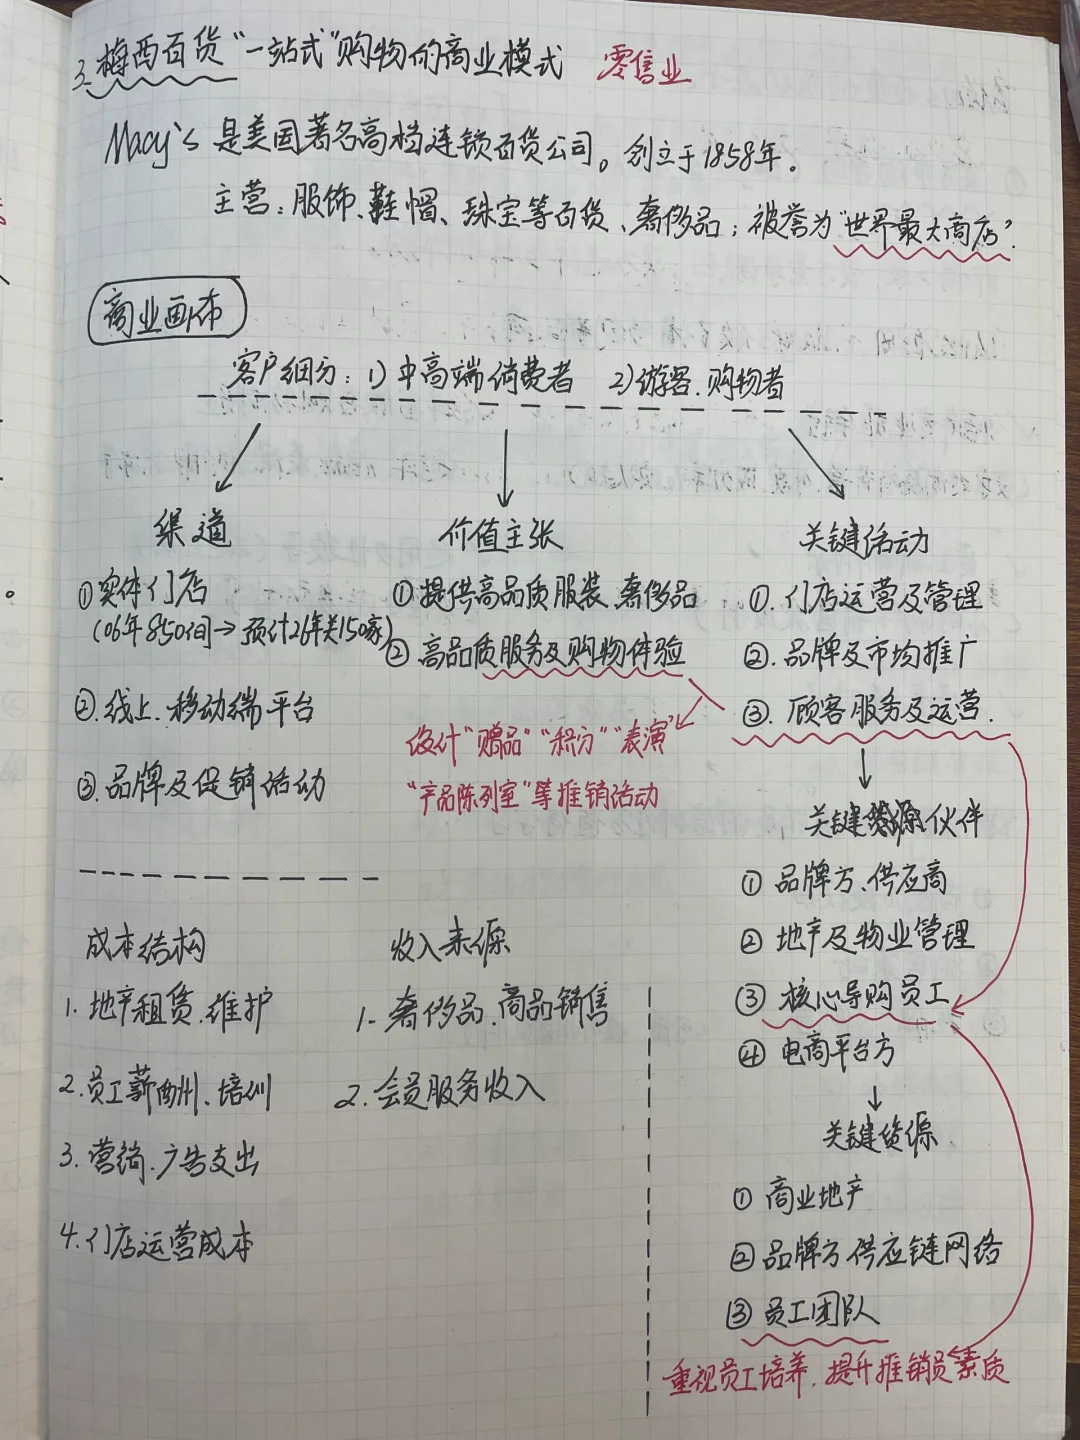 3. 梅西百货“一站式”购物的商业模式 零售业
Macy's 是美国著名高档连锁百货公司。创立于1858年.
主营:服饰、鞋帽、珠宝等百货、奢侈品;被誉为“世界最大商店”.
商业画布
客户细分:1)中高端消费者 2)游客.购物者
渠道
①实体门店
(06年850间→预计26年关150家)
②.线上.移动端平台
③.品牌及促销活动
价值主张
①提供高品质服装.奢侈品
②高品质服务及购物体验
设计“赠品”“积分”“表演”
“产品陈列室”等推销活动
关键活动
①.门店运营及管理
②.品牌及市均推广
③.顾客服务及运营.
关键伙伴
①品牌方.供应商
②地产及物业管理
③核心导购员工
④电商平台方
关键资源
①商业地产
②品牌方供应链网络
③员工团队
重视员工培养.提升推销员素质
成本结构
1.地产租赁.维护
2.员工薪酬、培训
3.营销.广告支出
4.门店运营成本
收入来源
1.奢侈品.商品销售
2.会员服务收入